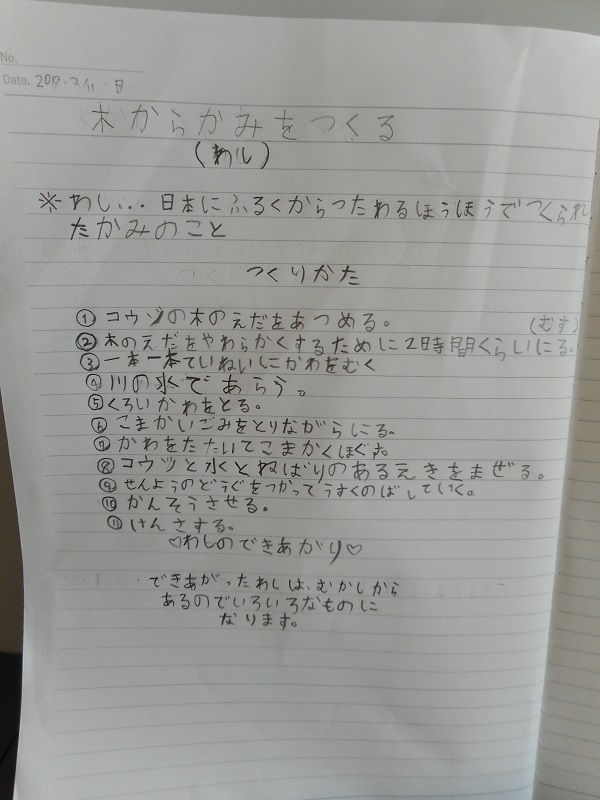 No.
Date. 日
木からかみをつくる
(わし)
※わし...日本にふるくからつたわるほうほうでつくられ
たかみのこと
つくりかた
① コウゾの木のえだをあつめる。
(むす)
② 木のえだをやわらかくするために2時間くらいにる。
③ 一本一本ていねいにかわをむく
④ 川の水であらう。
⑤ くろいかわをとる。
⑥ こまかいごみをとりながらにる。
⑦ かわをたたいてこまかくほぐす。
⑧ コウツと水とねばりのあるえきをまぜる。
⑨ せんようのどうぐをつかってうすくのばしていく。
⑩ かんそうさせる。
⑪ けんさする。
♡わしのできあがり♡
できあがったわしは、むかしから
あるのでいろいろなものに
なります。